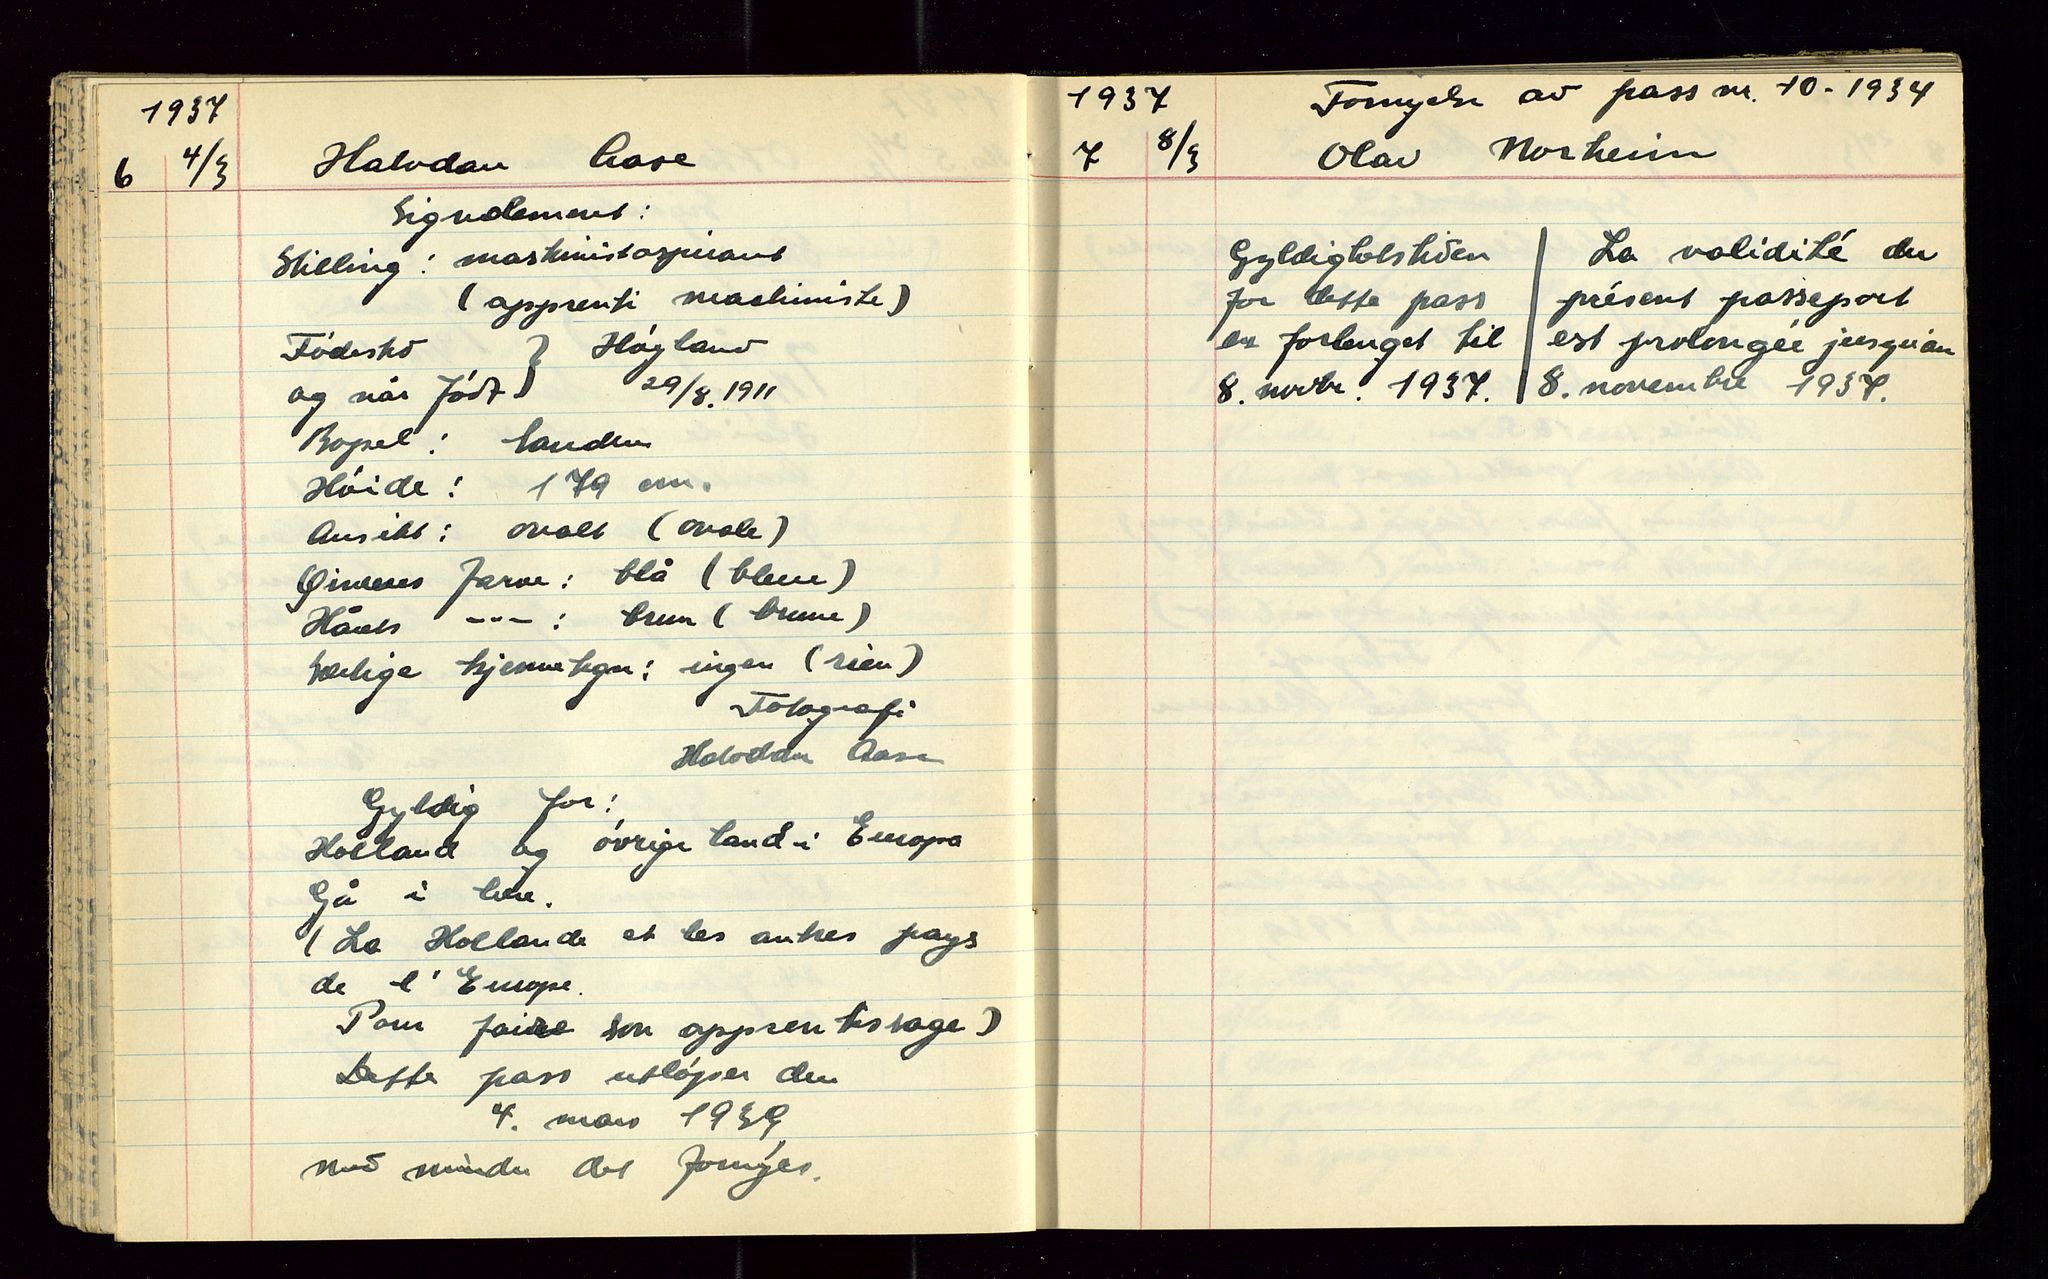 1937
6 4/3 Halvdan Aase
Signalement:
Stilling: maskinistaspirant
(apprenti machiniste)
Födested } Högland
og når födt } 29/8. 1911
Bopel: Randen
Höide: 179 cm.
Ansikt: ovalt (ovale)
Øinenes farve: blå (bleue)
Hårets ---: brun (brune)
Særlige kjennetegn: ingen (rien)
Fotografi
Halvdan Aase
Gyldig for:
Holland og övrige land i Europa
Gå i lære.
(La Hollande et les autres pays
de l'Europe.
Pour faire son apprentissage)
Dette pass utlöper den
4. mars 1939
med mindre det fornyes.
1937 Fornyelse av pass nr. 10-1934
7 8/3 Olav Norheim
Gyldighetstiden
for dette pass
er forlenget til
8. novbr. 1937.
La validité du
présent passeport
est prolongée jusqu'au
8. novembre 1937.